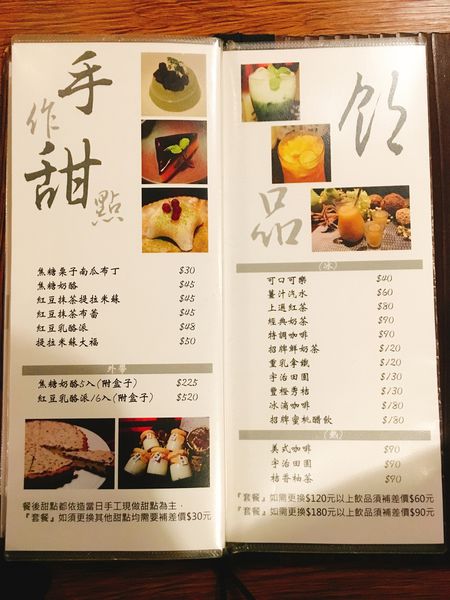 手作甜點
焦糖栗子南瓜布丁 $30
焦糖奶酪 $45
紅豆抹茶提拉米蘇 $45
紅豆抹茶布蕾 $45
紅豆乳酪派 $48
提拉米蘇大福 $50
外帶
焦糖奶酪5入(附盒子) $225
紅豆乳酪派/16入(附盒子) $520
餐後甜點都依造當日手工現做甜點為主，
『套餐』如須更換其他甜點均需要補差價$30元
飲品
(冰)
可口可樂 $40
薑汁汽水 $60
上選紅茶 $80
經典奶茶 $90
特調咖啡 $90
招牌鮮奶茶 $120
重乳拿鐵 $120
宇治田園 $130
豐橙秀桔 $130
冰滴咖啡 $180
招牌蜜桃醋飲 $180
(熱)
美式咖啡 $90
宇治田園 $90
桔香柚茶 $90
『套餐』如需更換$120元以上飲品須補差價$60元
『套餐』如需更換$180元以上飲品須補差價$90元